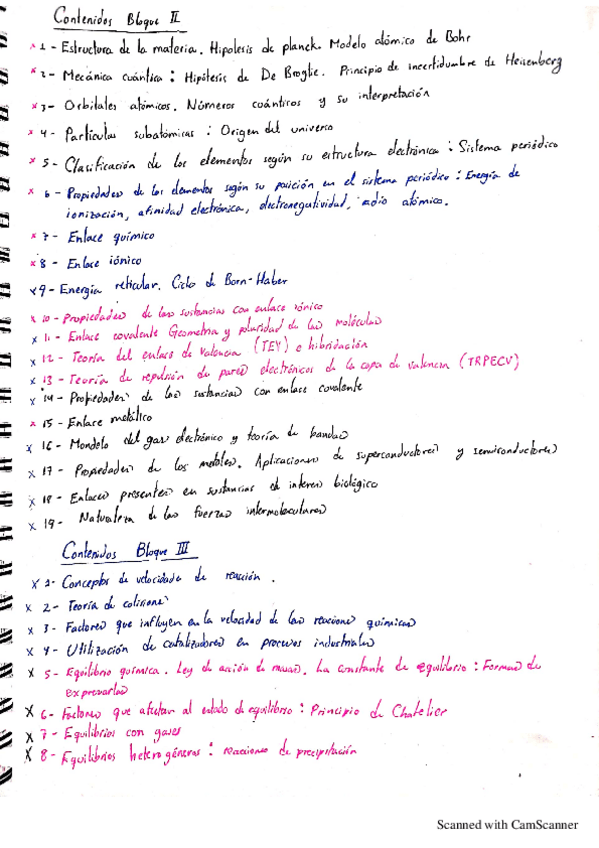 Contenidos Bloque II
x 1- Estructura de la materia. Hipotesis de planck. Modelo atómico de Bohr
x 2- Mecánica cuántica : Hipótesis de De Broglie. Principio de incertidumbre de Heisenberg
x 3- Orbitales atómicos. Números cuánticos y su interpretación
x 4- Partículas subatómicas : Origen del universo
x 5- Clasificación de los elementos según su estructura electrónica : Sistema periódico
x 6- Propiedades de los elementos según su posición en el sistema periódico : Energía de
ionización, afinidad electrónica, electronegatividad, radio atómico.
x 7- Enlace químico
x 8- Enlace iónico
x 9- Energía reticular. Ciclo de Born-Haber
x 10- Propiedades de las sustancias con enlace iónico
x 11- Enlace covalente Geometría y polaridad de las moléculas
x 12- Teoría del enlace de valencia (TEV) e hibridación
x 13- Teoría de repulsión de pares electrónicos de la capa de valencia (TRPECV)
x 14- Propiedades de las sustancias con enlace covalente
x 15- Enlace metálico
x 16- Mondelo del gas electrónico y teoría de bandas
x 17- Propiedades de los metales. Aplicaciones de superconductores y semiconductores
x 18- Enlaces presentes en sustancias de interes biológico
x 19- Naturaleza de las fuerzas intermoleculares
Contenidos Bloque III
x 1- Conceptos de velocidad de reacción.
x 2- Teoría de colisiones
x 3- Factores que influyen en la velocidad de las reacciones químicas
x 4- Utilización de catalizadores en procesos industriales
x 5- Equilibrio química. Ley de acción de masas. La constante de equilibrio : Formas de
expresarlas
x 6- Factores que afectan al estado de equilibrio : Principio de Chatelier
x 7- Equilibrios con gases
x 8- Equilibrios heterogéneas : reacciones de precipitación
Scanned with CamScanner